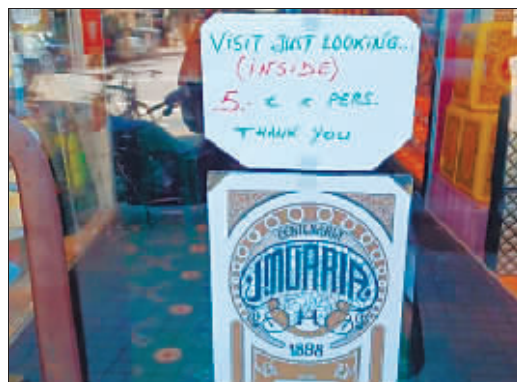 VISIT JUST LOOKING...
(INSIDE)
5.- € x PERS.
THANK YOU
CENTENARIA
J. MURRIA
1898